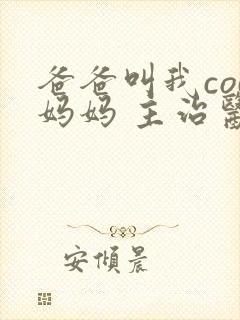 爸爸叫我co
妈妈 主治
安傾晨